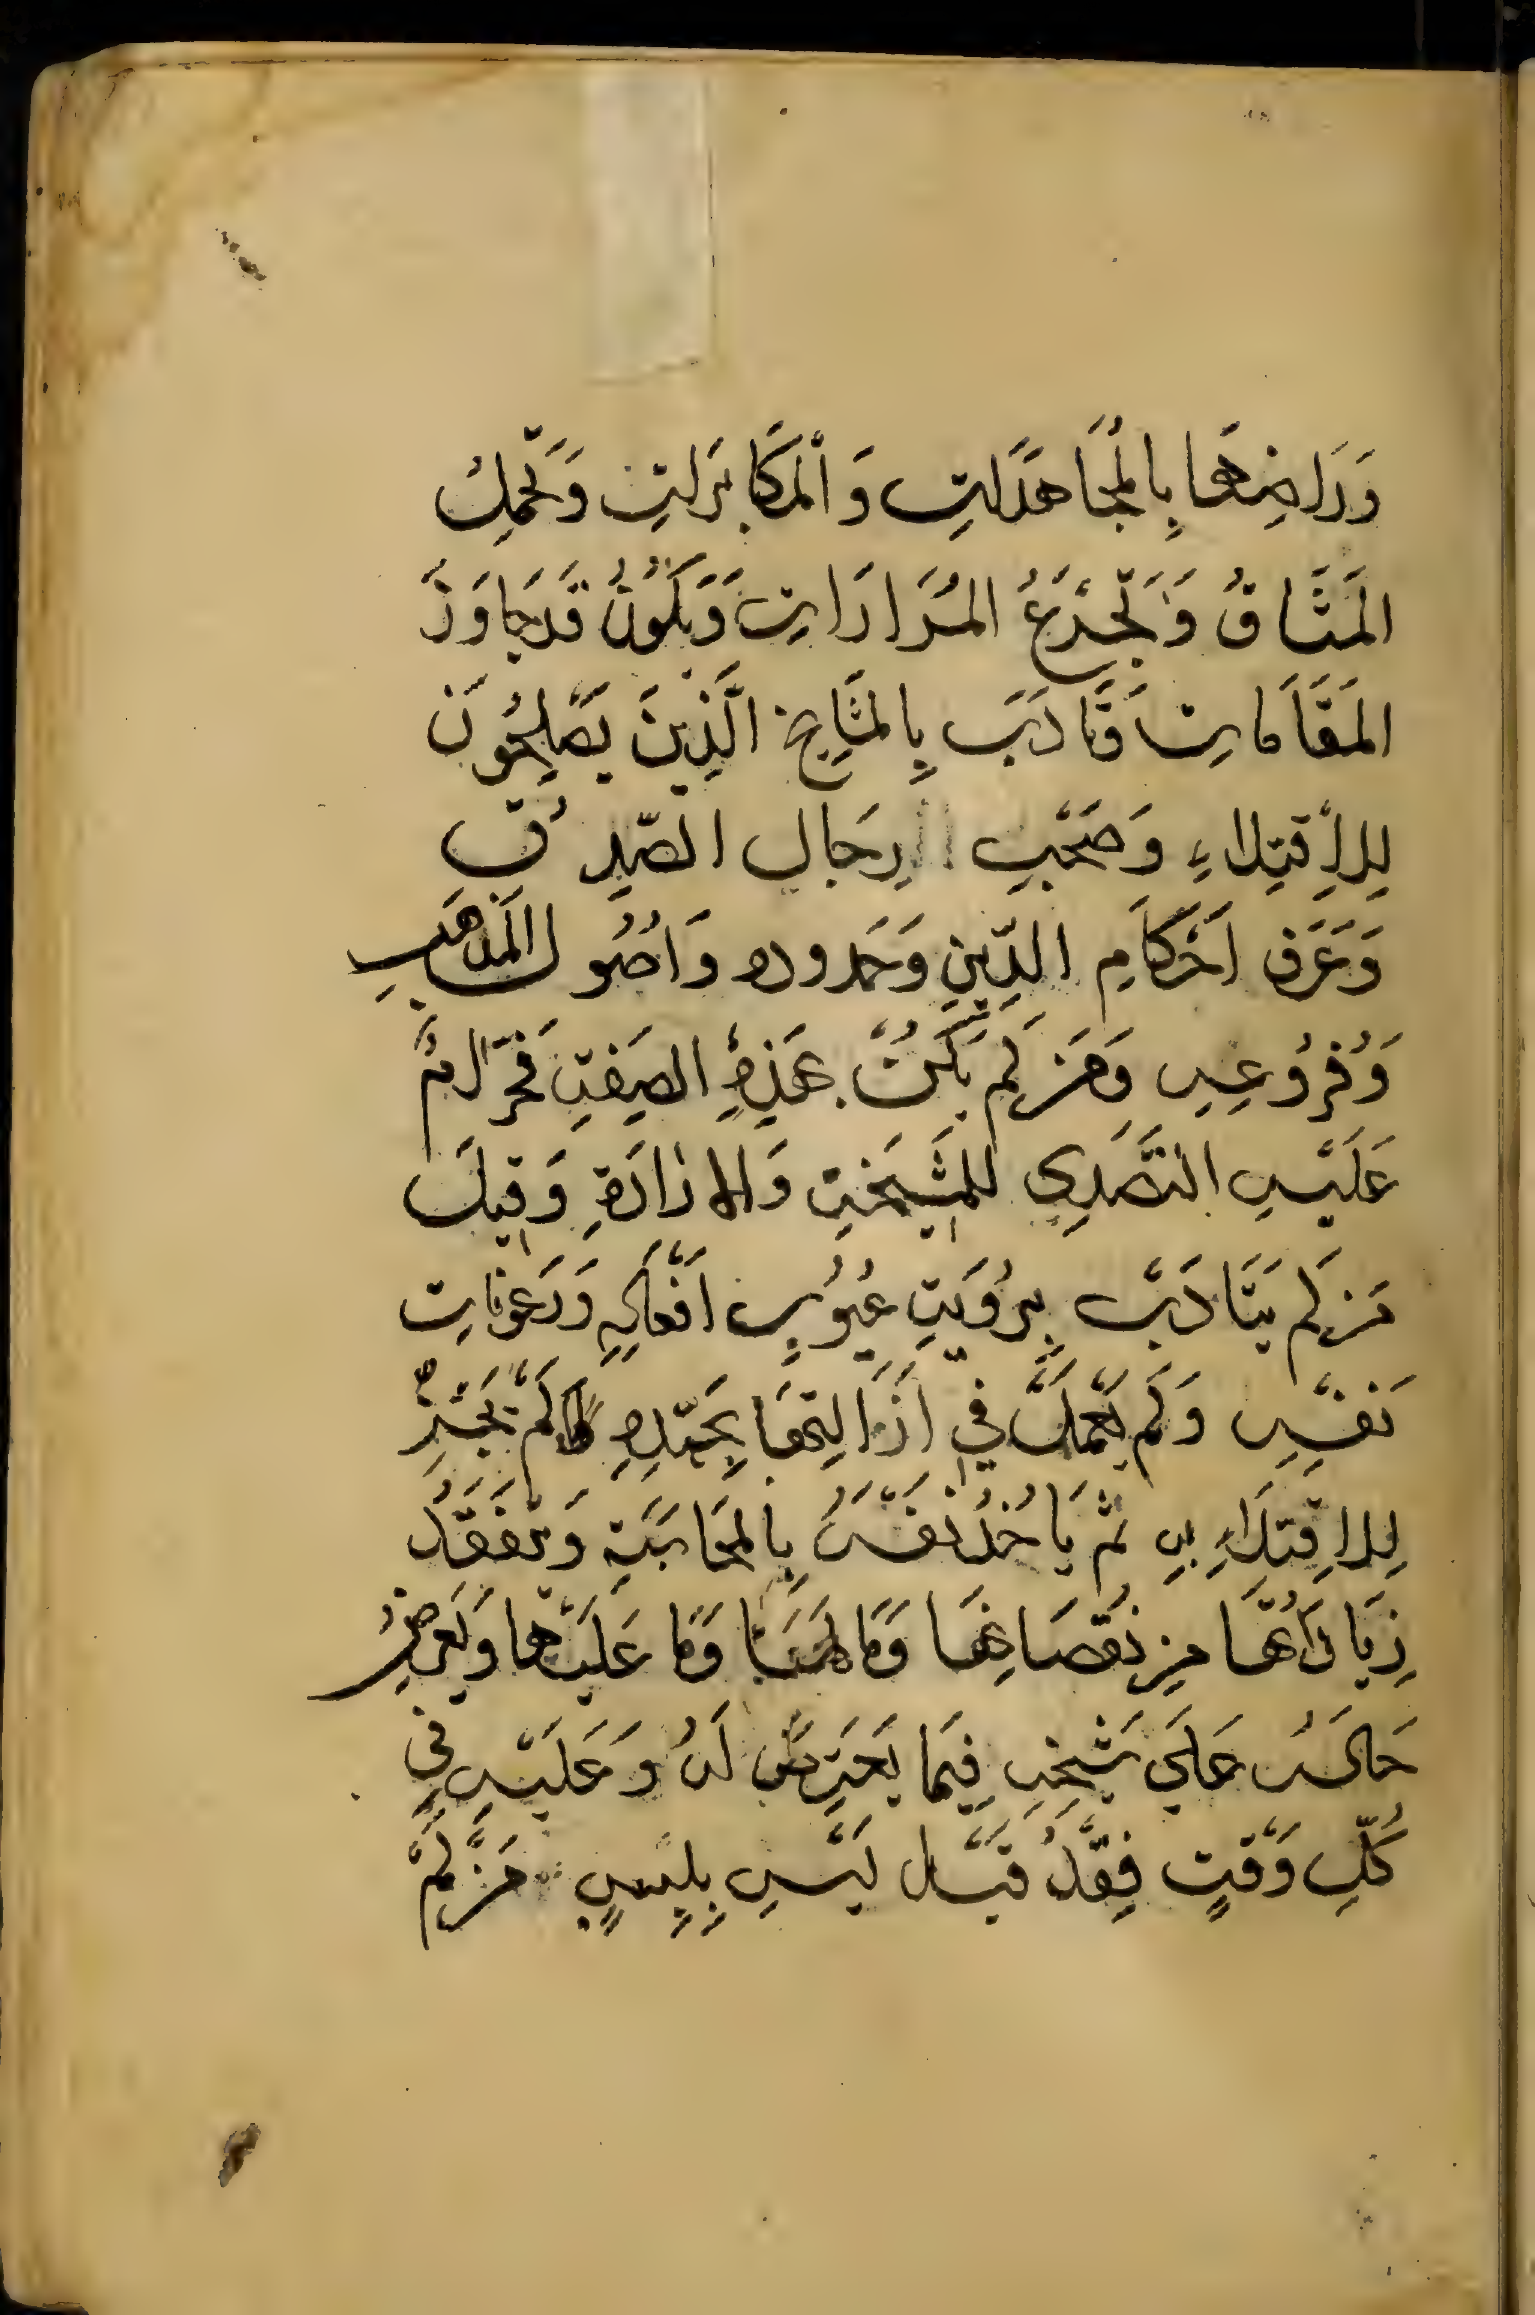 وَرَاضِهَا بِالْمُجَاهَدَاتِ وَالْمَكَابَرَاتِ وَتَحَمَّلَ
المَشَاقُ وَتَجَرَّعُ المُرَارَاتِ وَيَكُونُ قَدجَاوَزَ
المَقَامَاتِ وَتَأَدَبَ بِالمشَايِخِ الَّذِينَ يَصْلِحُونَ
لِلإِقتِدَاءِ وَصَحِبَ رِجَال الصِّدقِ
وَعَرَفَ اَحْكَامِ الدِّينِ وَحَدوده وَاُصُول المَذهَبِ
وَفُرُوعِهِ وَمَن لَم يَكُنْ بِهَذِهِ الصِفَتِ فَحَرَامٌ
عَلَيْهِ التَّصَدِي لِلمَشِيخَتِ وَالإرَادَةِ وَقِيلَ
مَن لَم يَتَأَدَبْ بِرُؤيَتِ عُيُوبِ اَفْعَالِهِ وَرَعونَاتِ
نَفْسِهِ وَلَم يَعْمَلْ فِي اَزَالِتِهَا بِجَهْدِهِ لَمْ يَجُزْ
لِلاِقتِدَاءِ بِهِ ثم يَاخُذُ نَفْسَهُ بِالمحَاسَبَةِ وَتفَقَدُ
زِيَادَاتُهَا مِن نُقصَانِهَا وَمَا لَهَا وَمَا عَلَيْهَا وَيَعرِضُ
حَالَهُ عَلَي شَيْخِهِ فِيمَا يَعْتَرِضُ لَهُ وَعَلَيْهِ فِي
كُلِّ وَقْتٍ فَقَدْ قِيْلَ لَيْسَ بِلَبِيبٍ مَن لَمْ